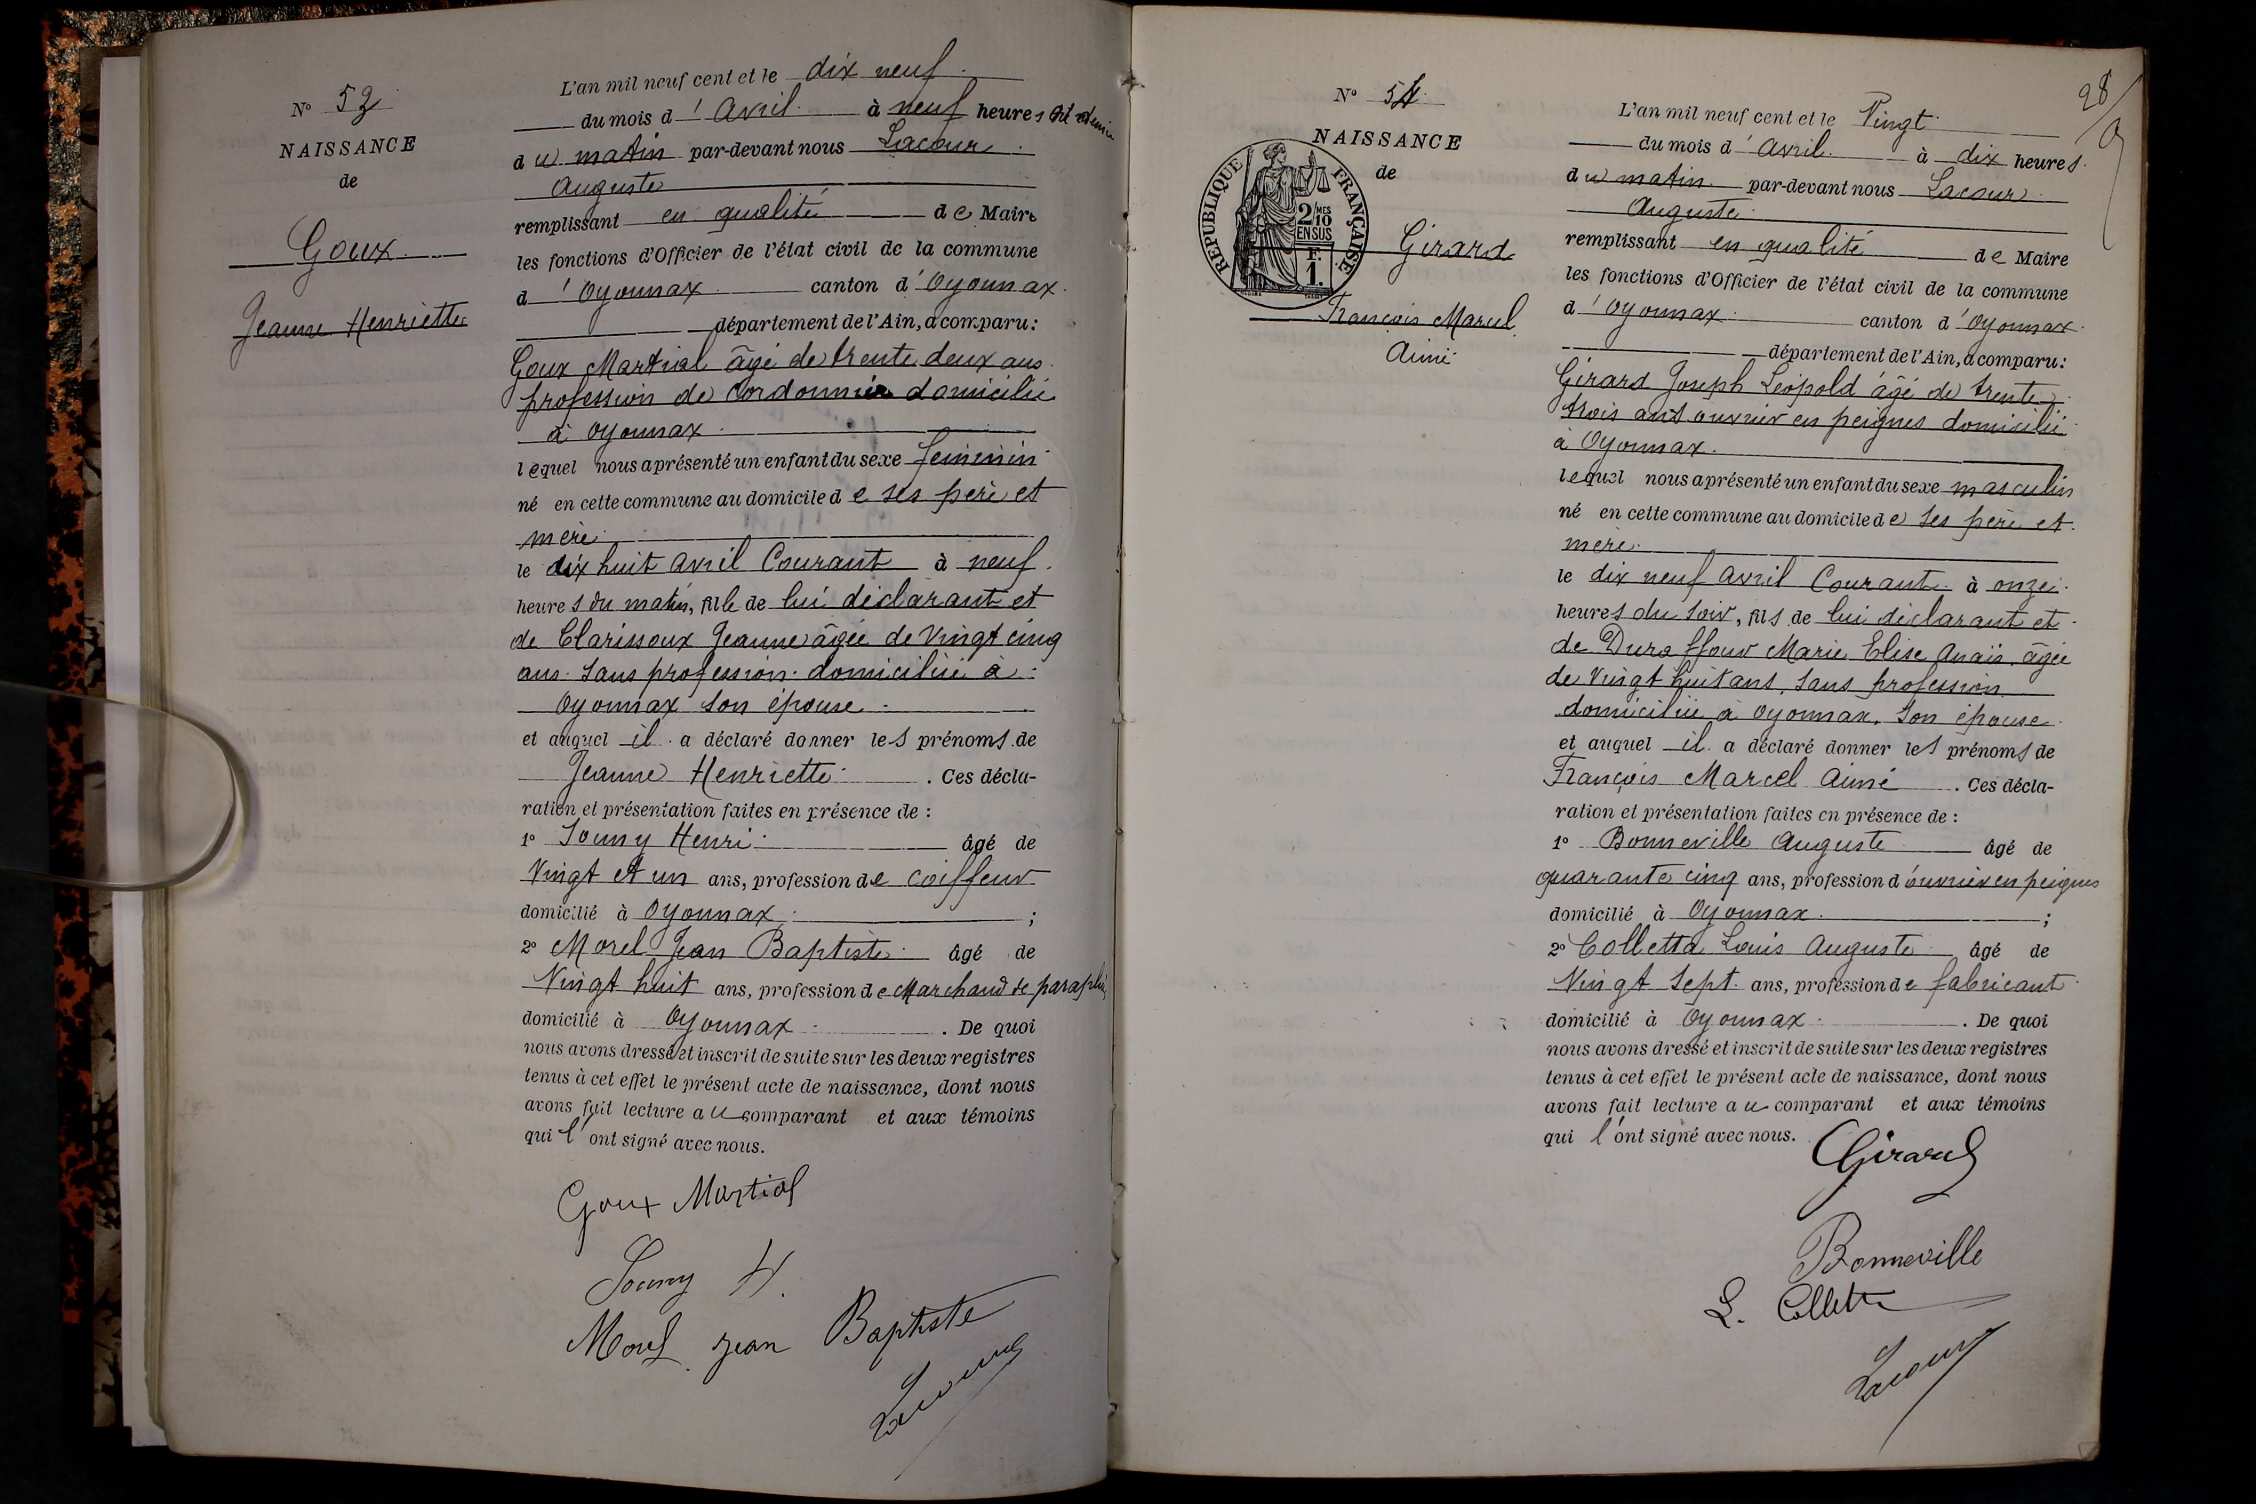 N° 53
NAISSANCE
de
Goux
Jeanne Henriette
L'an mil neuf cent et le dix neuf
du mois d'Avril à neuf heures et demie
du matin par-devant nous Lacour
Auguste
remplissant en qualité de Maire
les fonctions d'Officier de l'état civil de la commune
d'Oyonnax canton d'Oyonnax
département de l'Ain, a comparu :
Goux Martial âgé de trente deux ans
profession de Cordonnier domicilié
à Oyonnax
lequel nous a présenté un enfant du sexe féminin
né en cette commune au domicile de ses père et
mère
le dix huit avril Courant à neuf
heures du matin, fille de lui déclarant et
de Clarissoux Jeanne âgée de Vingt cinq
ans sans profession domiciliée à
Oyonnax son épouse
et auquel il a déclaré donner les prénoms de
Jeanne Henriette . Ces décla-
ration et présentation faites en présence de :
1° Soumy Henri âgé de
Vingt et un ans, profession de coiffeur
domicilié à Oyonnax ;
2° Morel Jean Baptiste âgé de
Vingt huit ans, profession de Marchand de parapluies
domicilié à Oyonnax . De quoi
nous avons dressé et inscrit de suite sur les deux registres
tenus à cet effet le présent acte de naissance, dont nous
avons fait lecture au comparant et aux témoins
qui l'ont signé avec nous.
Goux Martial
Soumy H.
Morel Jean Baptiste
Lacour
28
N° 54
NAISSANCE
de
RÉPUBLIQUE FRANÇAISE
2/10 MES
EN SUS
F.
1.
Girard
François Marcel
Aimé
L'an mil neuf cent et le Vingt
du mois d'Avril à dix heures
du matin par-devant nous Lacour
Auguste
remplissant en qualité de Maire
les fonctions d'Officier de l'état civil de la commune
d'Oyonnax canton d'Oyonnax
département de l'Ain, a comparu :
Girard Joseph Léopold âgé de trente
trois ans ouvrier en peignes domicilié
à Oyonnax
lequel nous a présenté un enfant du sexe masculin
né en cette commune au domicile de ses père et
mère
le dix neuf Avril Courant à onze
heures du soir, fils de lui déclarant et
de Duraffour Marie Elise Anaïs âgée
de Vingt huit ans, sans profession
domiciliée à Oyonnax, son épouse
et auquel il a déclaré donner les prénoms de
François Marcel Aimé . Ces décla-
ration et présentation faites en présence de :
1° Bonneville Auguste âgé de
quarante cinq ans, profession d'ouvrier en peignes
domicilié à Oyonnax ;
2° Colletta Louis Auguste âgé de
Vingt sept ans, profession de fabricant
domicilié à Oyonnax . De quoi
nous avons dressé et inscrit de suite sur les deux registres
tenus à cet effet le présent acte de naissance, dont nous
avons fait lecture au comparant et aux témoins
qui l'ont signé avec nous.
Girard
Bonneville
L. Colletta
Lacour